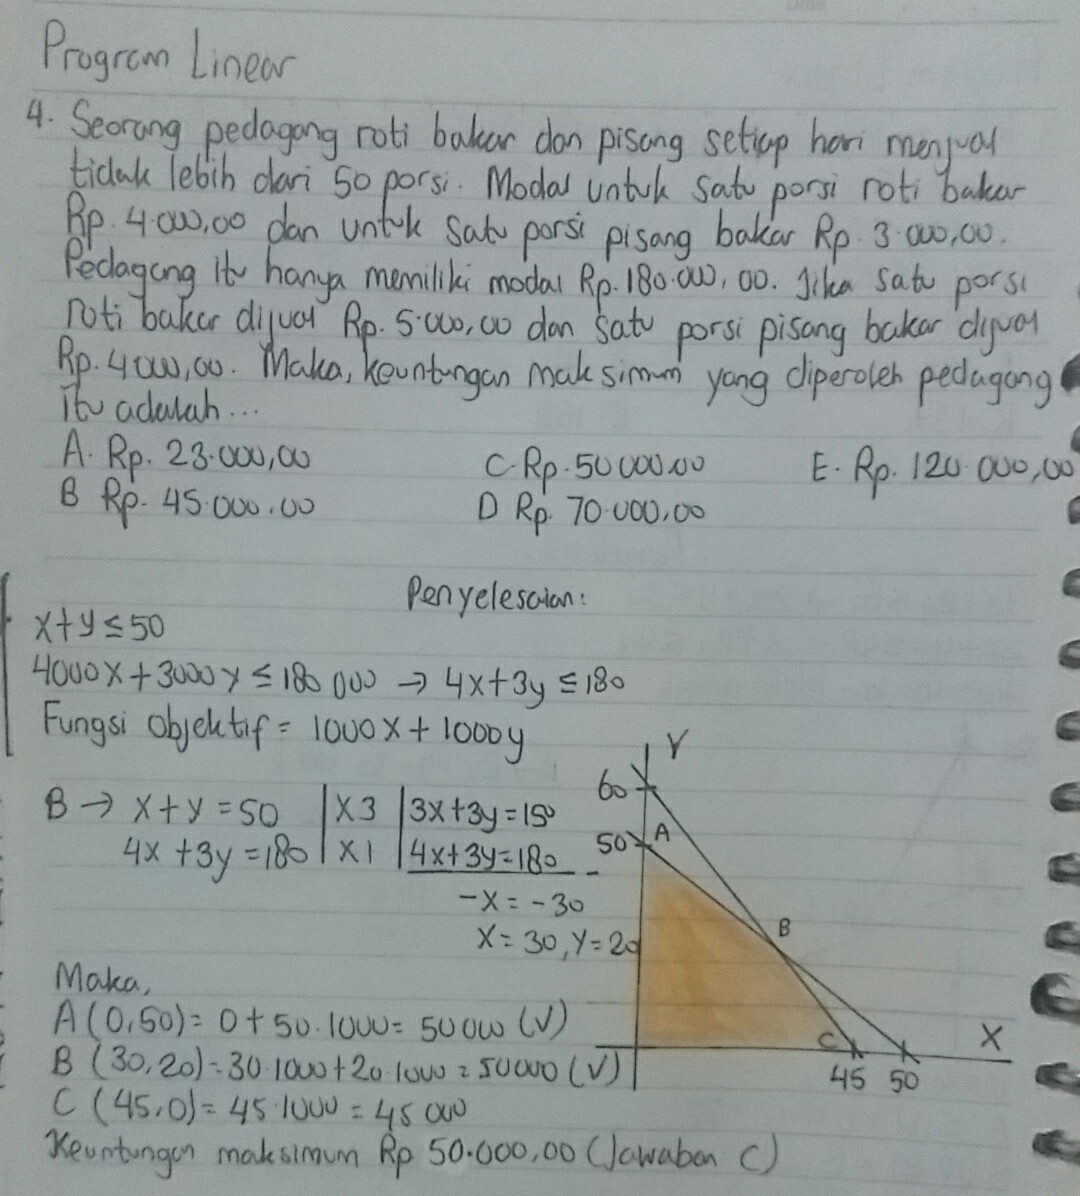 Program Linear
4. Seorang pedagang roti bakar dan pisang setiap hari menjual
tidak lebih dari 50 porsi. Modal untuk satu porsi roti bakar
Rp. 4.000,00 dan untuk satu porsi pisang bakar Rp. 3.000,00.
Pedagang itu hanya memiliki modal Rp. 180.000,00. Jika satu porsi
roti bakar dijual Rp. 5.000,00 dan satu porsi pisang bakar dijual
Rp. 4000,00. Maka, keuntungan maksimum yang diperoleh pedagang
itu adalah...
A. Rp. 23.000,00 C. Rp. 50000.00 E. Rp. 120.000,00
B Rp. 45.000.00 D Rp. 70.000,00
Penyelesaian:
x+y≤50
4000x+3000y≤180 000 → 4x+3y≤180
Fungsi Objektif = 1000x+1000y
B → x+y=50 | x3 | 3x+3y=150
4x+3y=180 | x1 | 4x+3y=180 -
-x=-30
x=30, y=20
Y
60
50 A
B
C X
45 50
Maka,
A (0,50)= 0+50.1000= 50000 (V)
B (30,20)=30.1000+20.1000=50000 (V)
C (45,0)=45.1000=45000
Keuntungan maksimum Rp 50.000,00 (Jawaban C)